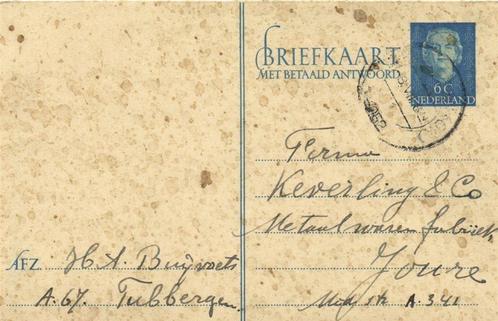 BRIEFKAART
MET BETAALD ANTWOORD
6 C
NEDERLAND
Firma
Keverling & Co
Metaalwaren fabriek
Joure
A.341
AFZ. H A Buijvoets
A.67. Tubbergen.